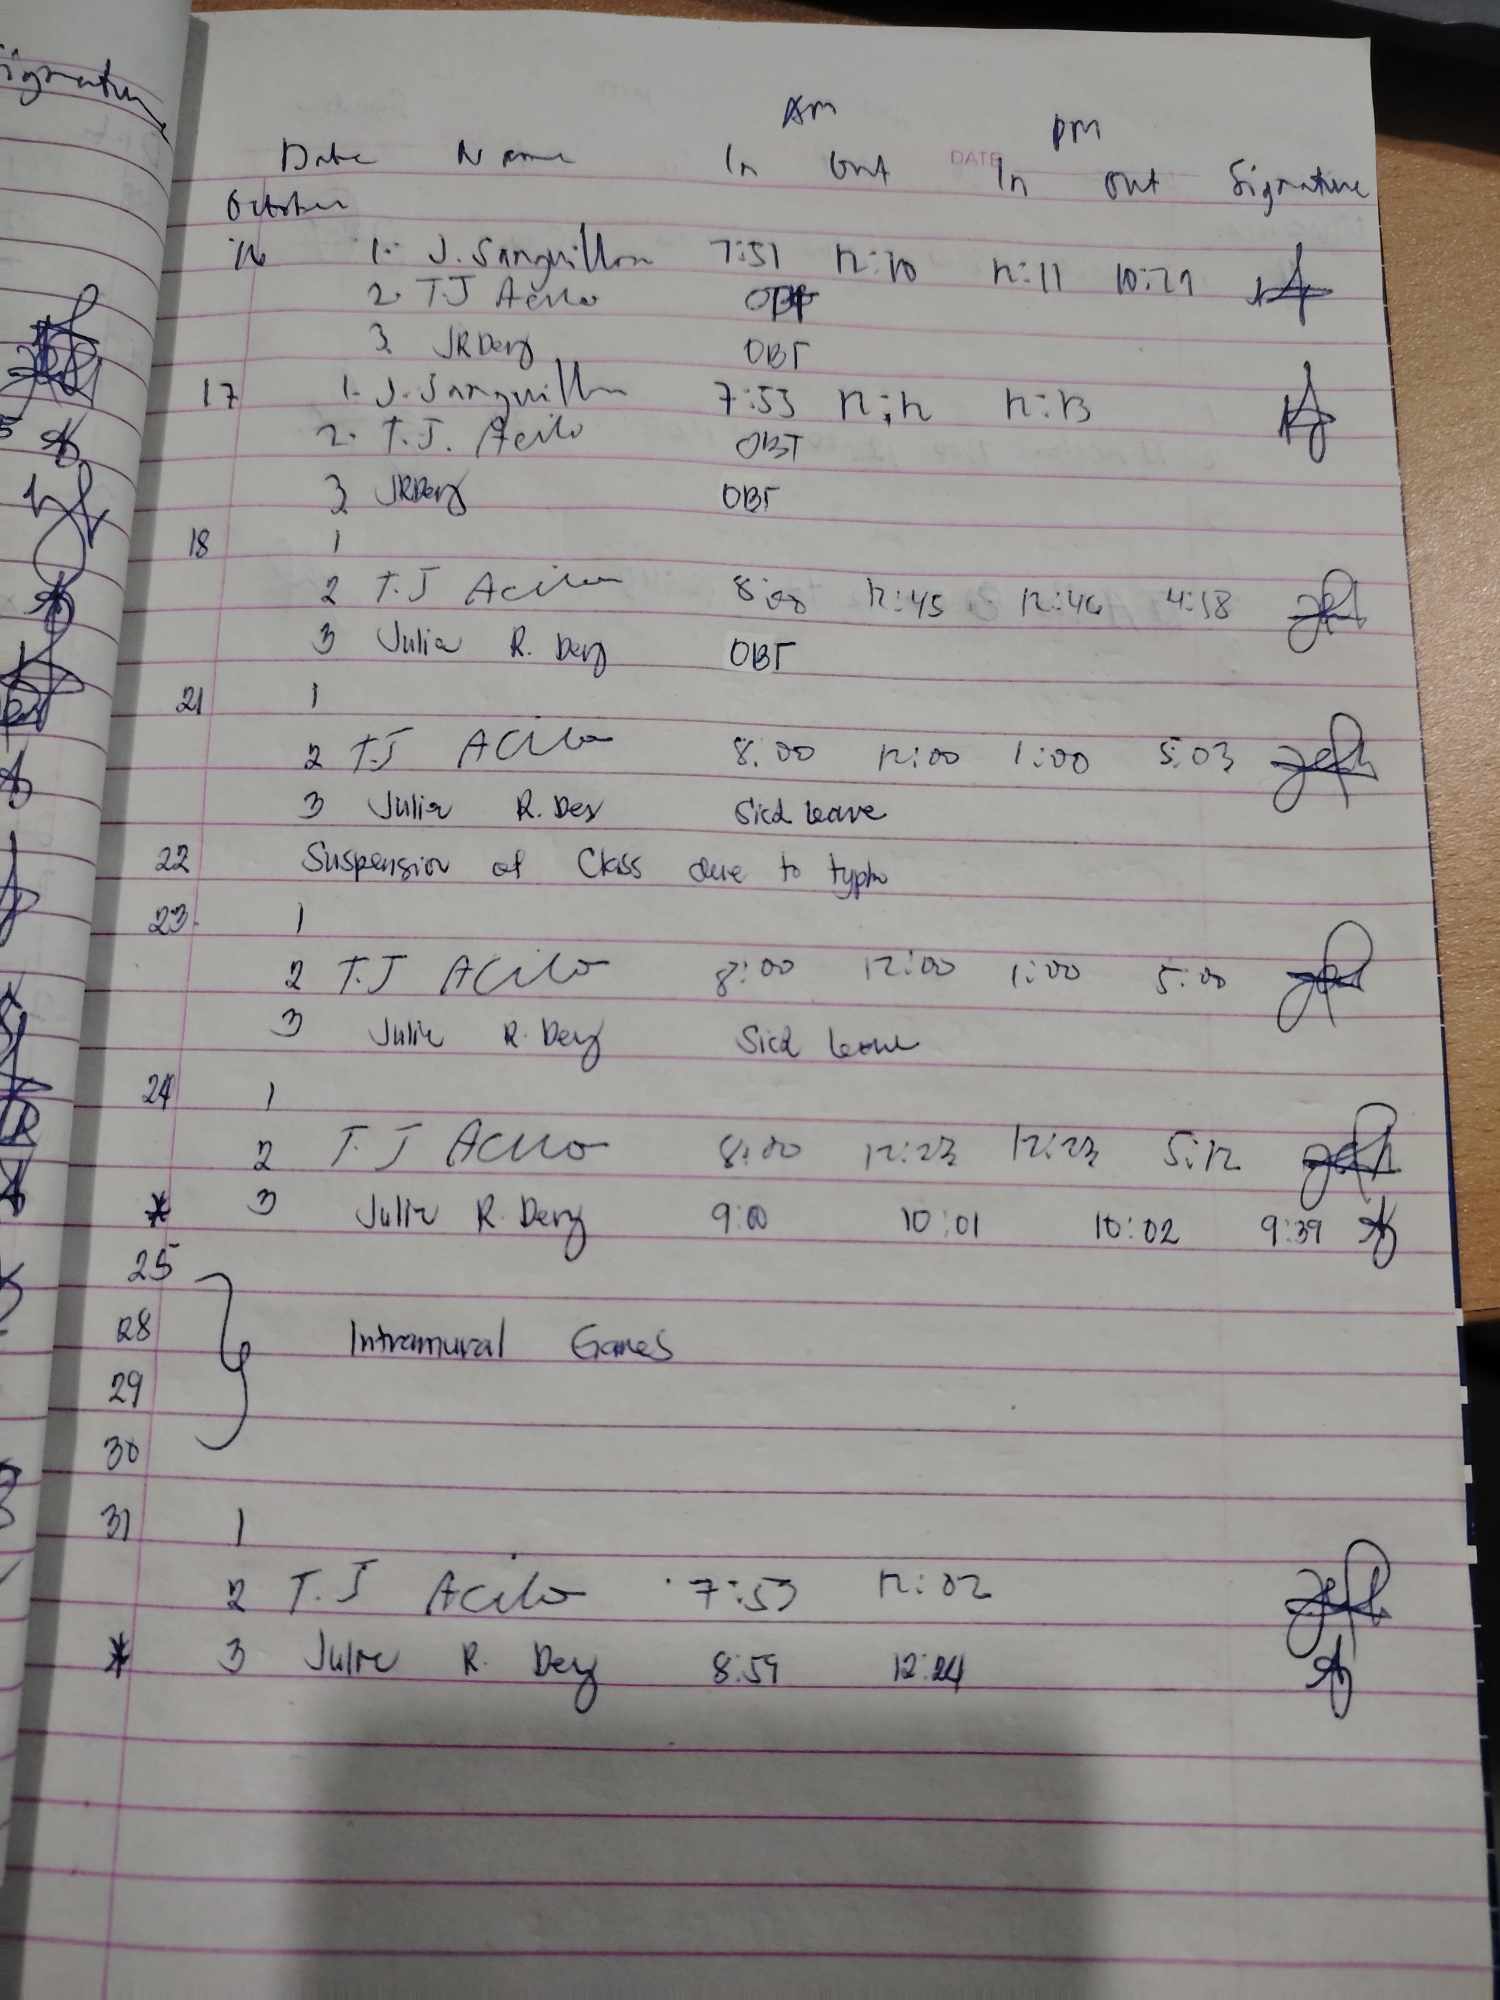 Signature
AM PM
Date Name In Out DATE In Out Signature
October
16 1. J. Sanguillon 7:51 12:10 12:11 10:27
2. T.J Acilo OBT
3 JRDery OBT
17 1. J. Sanguillon 7:53 12:12 12:13
2. T.J. Acilo OBT
3 JRDery OBT
18 1
2 T.J Acilo 8:00 12:45 12:46 4:58
3 Julie R. Dery OBT
21 1
2 T.J Acilo 8:00 12:00 1:00 5:03
3 Julie R. Dery Sick leave
22 Suspension of Class due to
23 1
2 T.J Acilo 8:00 12:00 1:00 5:00
3 Julie R. Dery Sick leave
24 1
2 T.J Acilo 8:00 12:23 12:23 5:12
* 3 Julie R. Dery 9:00 10:01 10:02 9:39
25
28 Intramural Games
29
30
31 1
2 T.J Acilo 7:53 12:02
* 3 Julie R. Dery 8:59 12:24